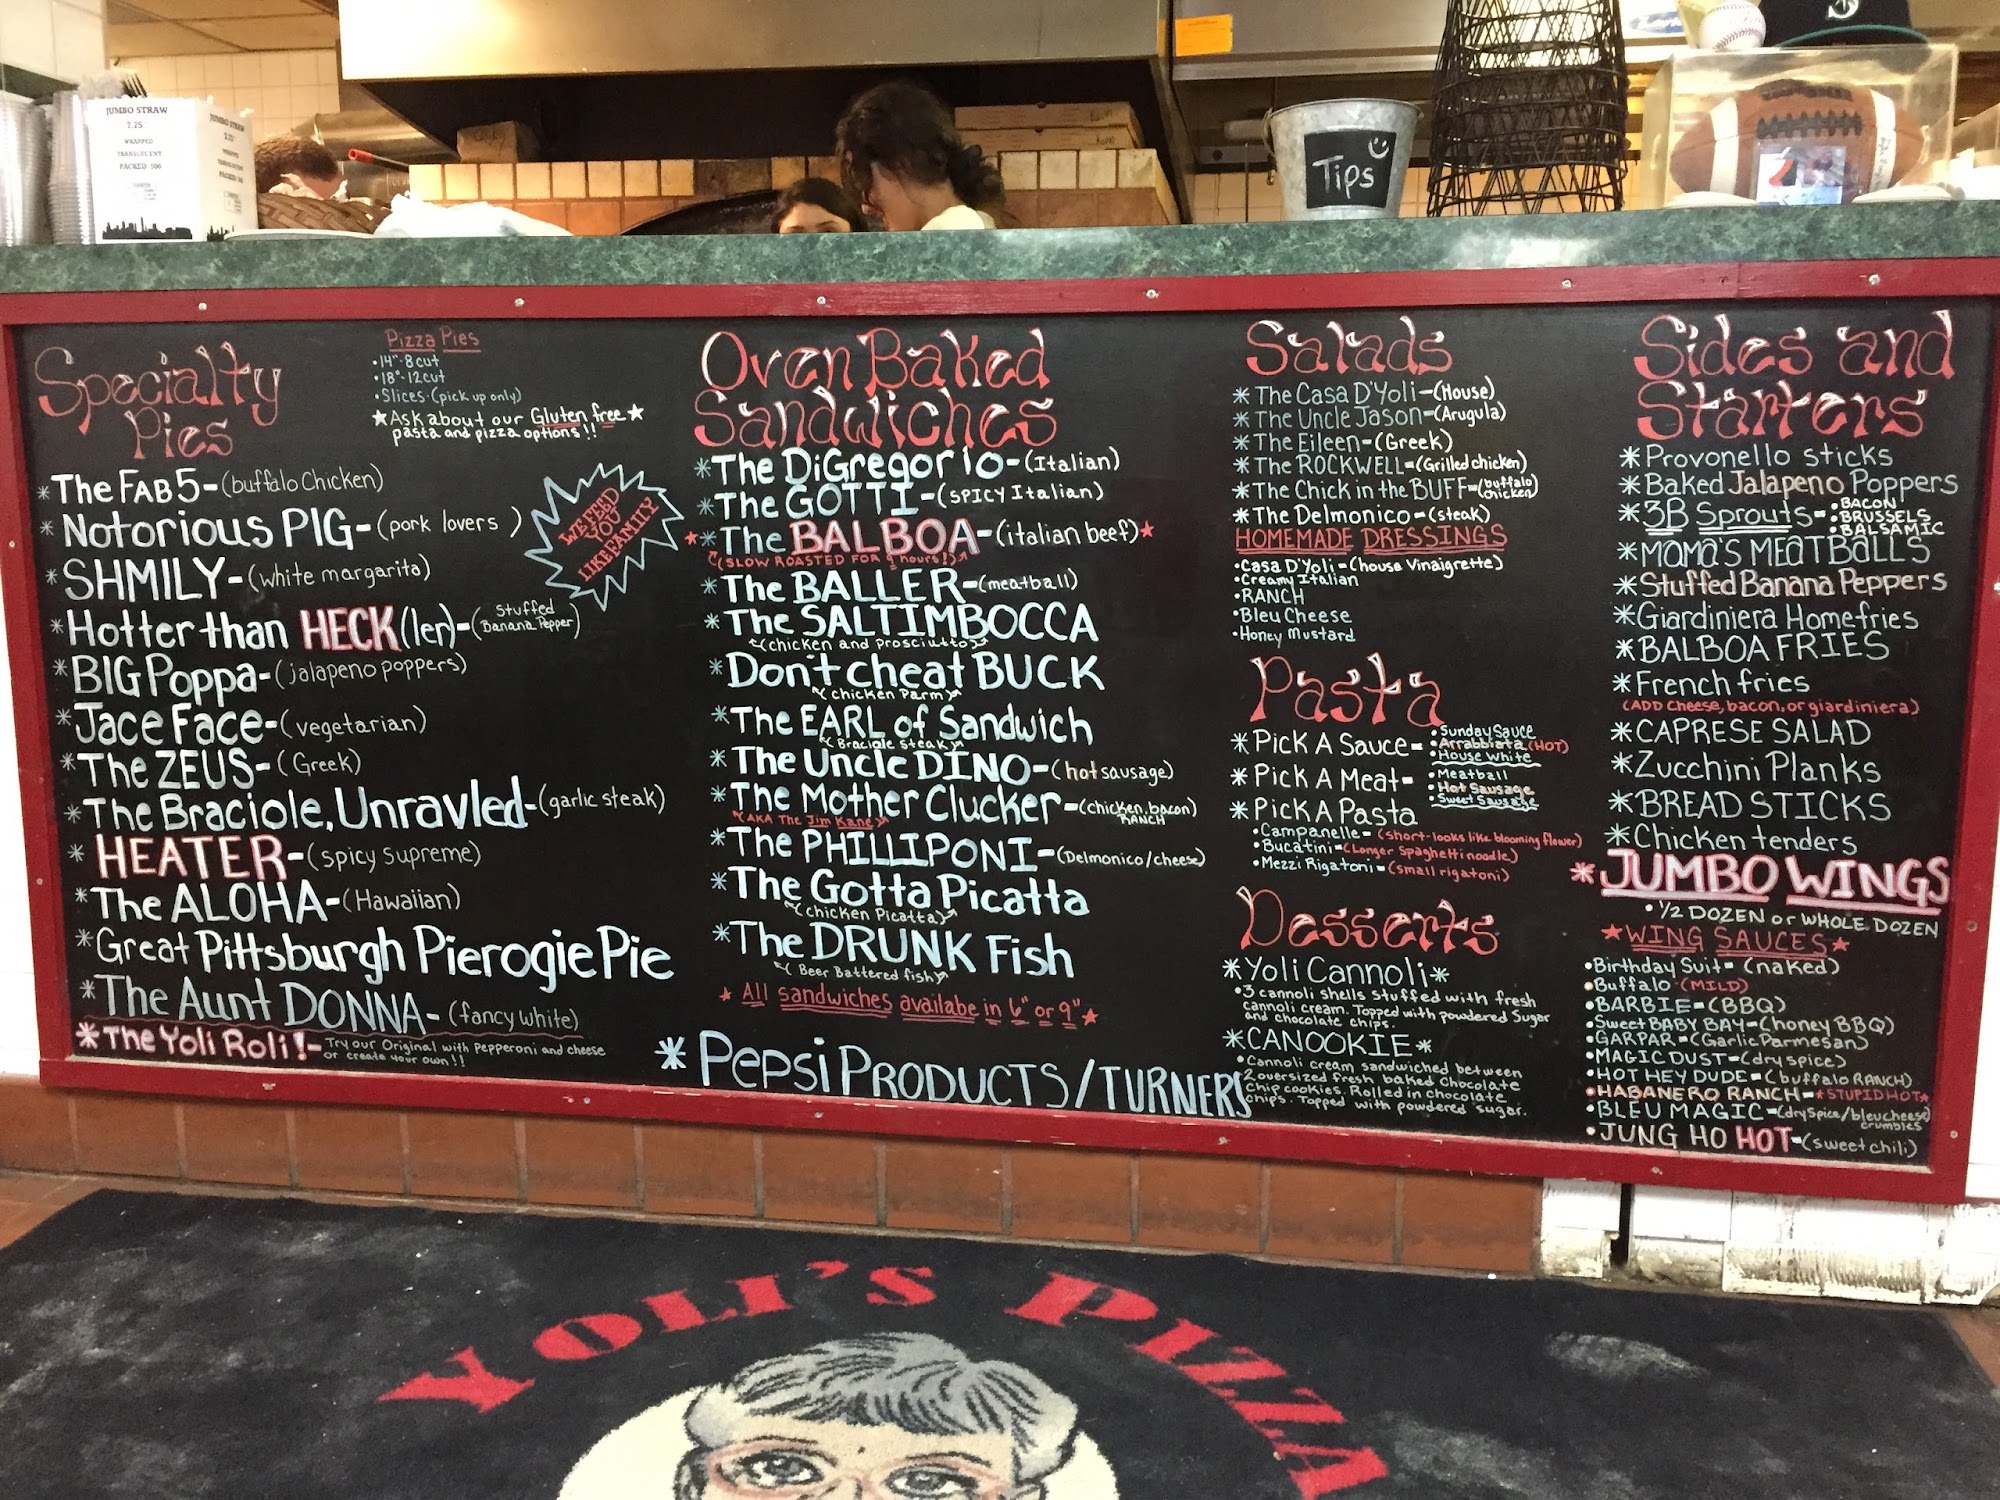 JUMBO STRAW
7.75
WRAPPED
TRANSLUCENT
PACKED 500
JUMBO STRAW
7.75
Tips
Specialty
Pies
Pizza Pies
•14"-8cut
•18"-12cut
•Slices-(pick up only)
★Ask about our Gluten free★
pasta and pizza options!!
WE FEED
YOU
LIKE FAMILY
*The FAB 5-(buffalo Chicken)
*Notorious PIG-(pork lovers)
*SHMILY-(white margarita)
*Hotter than HECK(ler)-(Stuffed Banana Pepper)
*BIG Poppa-(jalapeno poppers)
*Jace Face-(vegetarian)
*The ZEUS-(Greek)
*The Braciole, Unravled-(garlic steak)
*HEATER-(spicy supreme)
*The ALOHA-(Hawaiian)
*Great Pittsburgh Pierogie Pie
*The Aunt DONNA-(fancy white)
*The Yoli Roli!-Try our Original with Pepperoni and cheese
or create your own!!
Oven Baked
Sandwiches
*The DiGregorio-(Italian)
*The GOTTI-(SPICY Italian)
★*The BALBOA-(italian beef)★
(SLOW ROASTED FOR 9 hours!)
*The BALLER-(meatball)
*The SALTIMBOCCA
(chicken and prosciutto)
*Don't cheat BUCK
(chicken Parm)
*The EARL of Sandwich
(Braciole Steak)
*The Uncle DINO-(hot sausage)
*The Mother Clucker-(chicken, bacon, RANCH)
(AKA The Jim Kane)
*The PHILLIPONI-(Delmonico/cheese)
*The Gotta Picatta
(chicken Picatta)
*The DRUNK Fish
(Beer Battered fish)
★All sandwiches availabe in 6" or 9"★
*PEPSI PRODUCTS/TURNERS
Salads
*The Casa D'Yoli-(House)
*The Uncle Jason-(Arugula)
*The Eileen-(Greek)
*The ROCKWELL-(Grilled chicken)
*The Chick in the BUFF-(buffalo chicken)
*The Delmonico-(steak)
HOMEMADE DRESSINGS
•Casa D'Yoli-(house Vinaigrette)
•Creamy Italian
•RANCH
•Bleu Cheese
•Honey Mustard
Pasta
*Pick A Sauce-
•Sunday Sauce
•Arrabbiata (HOT)
•House White
*Pick A Meat-
•Meatball
•Hot Sausage
•Sweet Sausage
*Pick A Pasta
•Campanelle-(short-looks like blooming flower)
•Bucatini-(Longer Spaghetti noodle)
•Mezzi Rigatoni-(small rigatoni)
Desserts
*Yoli Cannoli*
•3 cannoli shells stuffed with fresh
cannoli cream. Topped with powdered Sugar
and chocolate chips.
*CANOOKIE*
•Cannoli cream sandwiched between
2 oversized fresh baked Chocolate
chip cookies. Rolled in chocolate
chips. Topped with powdered sugar.
Sides and
Starters
*Provonello sticks
*Baked Jalapeno Poppers
*3B Sprouts-
•BACON
•BRUSSELS
•BALSAMIC
*MAMA'S MEATBALLS
*Stuffed Banana Peppers
*Giardiniera Homefries
*BALBOA FRIES
*French fries
(ADD cheese, bacon, or giardiniera)
*CAPRESE SALAD
*Zucchini Planks
*BREAD STICKS
*Chicken tenders
*JUMBO WINGS
•1/2 DOZEN or WHOLE DOZEN
★WING SAUCES★
•Birthday Suit-(naked)
•Buffalo-(MILD)
•BARBIE-(BBQ)
•Sweet BABY BAY-(honey BBQ)
•GARPAR-(Garlic Parmesan)
•MAGIC DUST-(dry spice)
•HOT HEY DUDE-(buffalo RANCH)
•HABANERO RANCH-★STUPID HOT★
•BLEU MAGIC-(dry Spice/bleu cheese crumbles)
•JUNG HO HOT-(sweet chili)
YOLI'S PIZZA